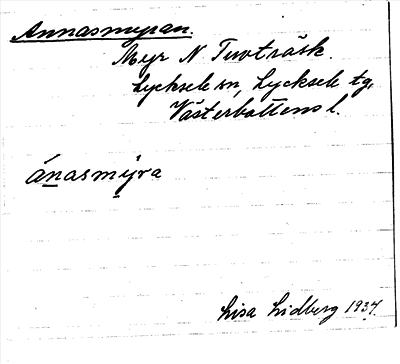 Annasmyran.
Myr N Tuvträsk.
Lycksele sn, Lycksele tg,
Västerbottens l.
ánasmýra
Lisa Lidberg 1937.